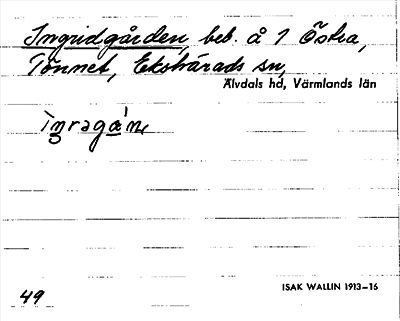 Ingridgården, beb. å 7 Östra,
Tönnet, Ekshärads sn,
Älvdals hd, Värmlands län
49
ISAK WALLIN 1913–16